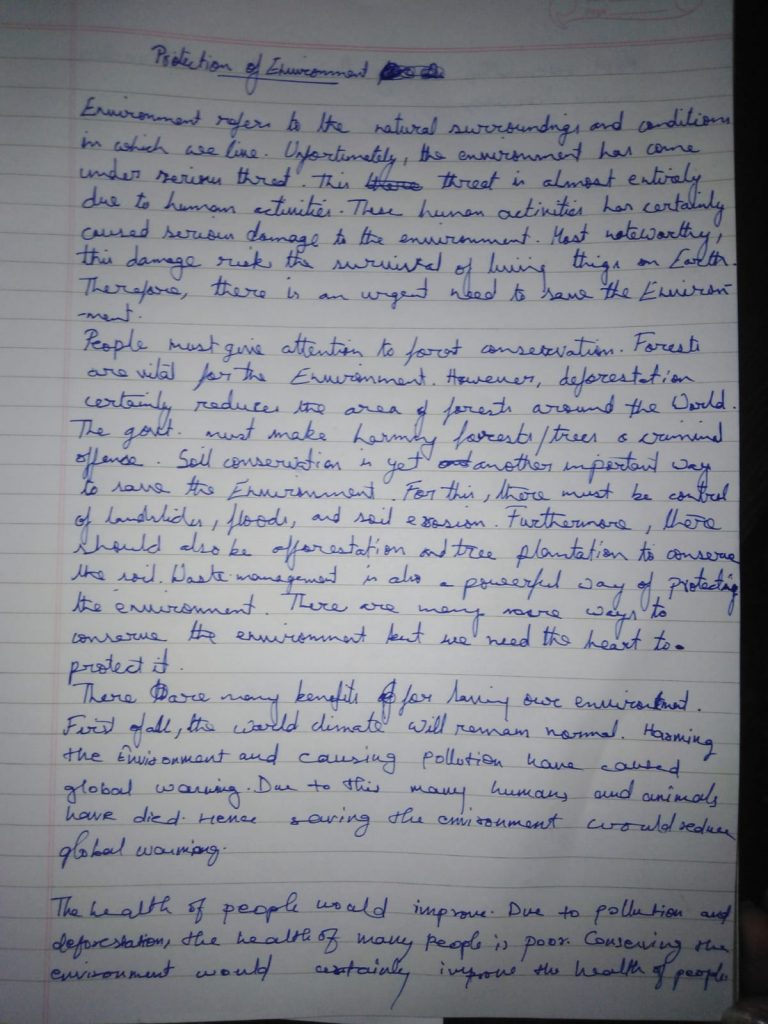 Protection of Environment
Environment refers to the natural surroundings and conditions
in which we live. Unfortunately, the environment has come
under serious thret. This threat is almost entirely
due to human activities. These human activities has certainly
caused serious damage to the environment. Most noteworthy,
this damage risk the survival of living things on Earth.
Therefore, there is an urgent need to save the Environ-
-ment.
People must give attention to forst conservation. Forests
are vital for the Environment. However, deforestation
certainly reduces the area of forests around the World.
The govt. must make harming forests/trees a criminal
offence. Soil conservation is yet another important way
to save the Environment. For this, there must be control
of landslides, floods, and soil erosion. Furthermore, there
should also be afforestation and tree plantation to conserve
the soil. Waste management is also a powerful way of protecting
the environment. There are many more ways to
conserve the environment but we need the heart to
protect it.
There are many benefits for saving our environment.
First of all, the world climate will remain normal. Harming
the Environment and causing pollution have caused
global warming. Due to this many humans and animals
have died. Hence saving the environment would reduce
global warming.
The health of people would improve. Due to pollution and
deforestation, the health of many people is poor. Conserving the
environment would certainly improve the health of people